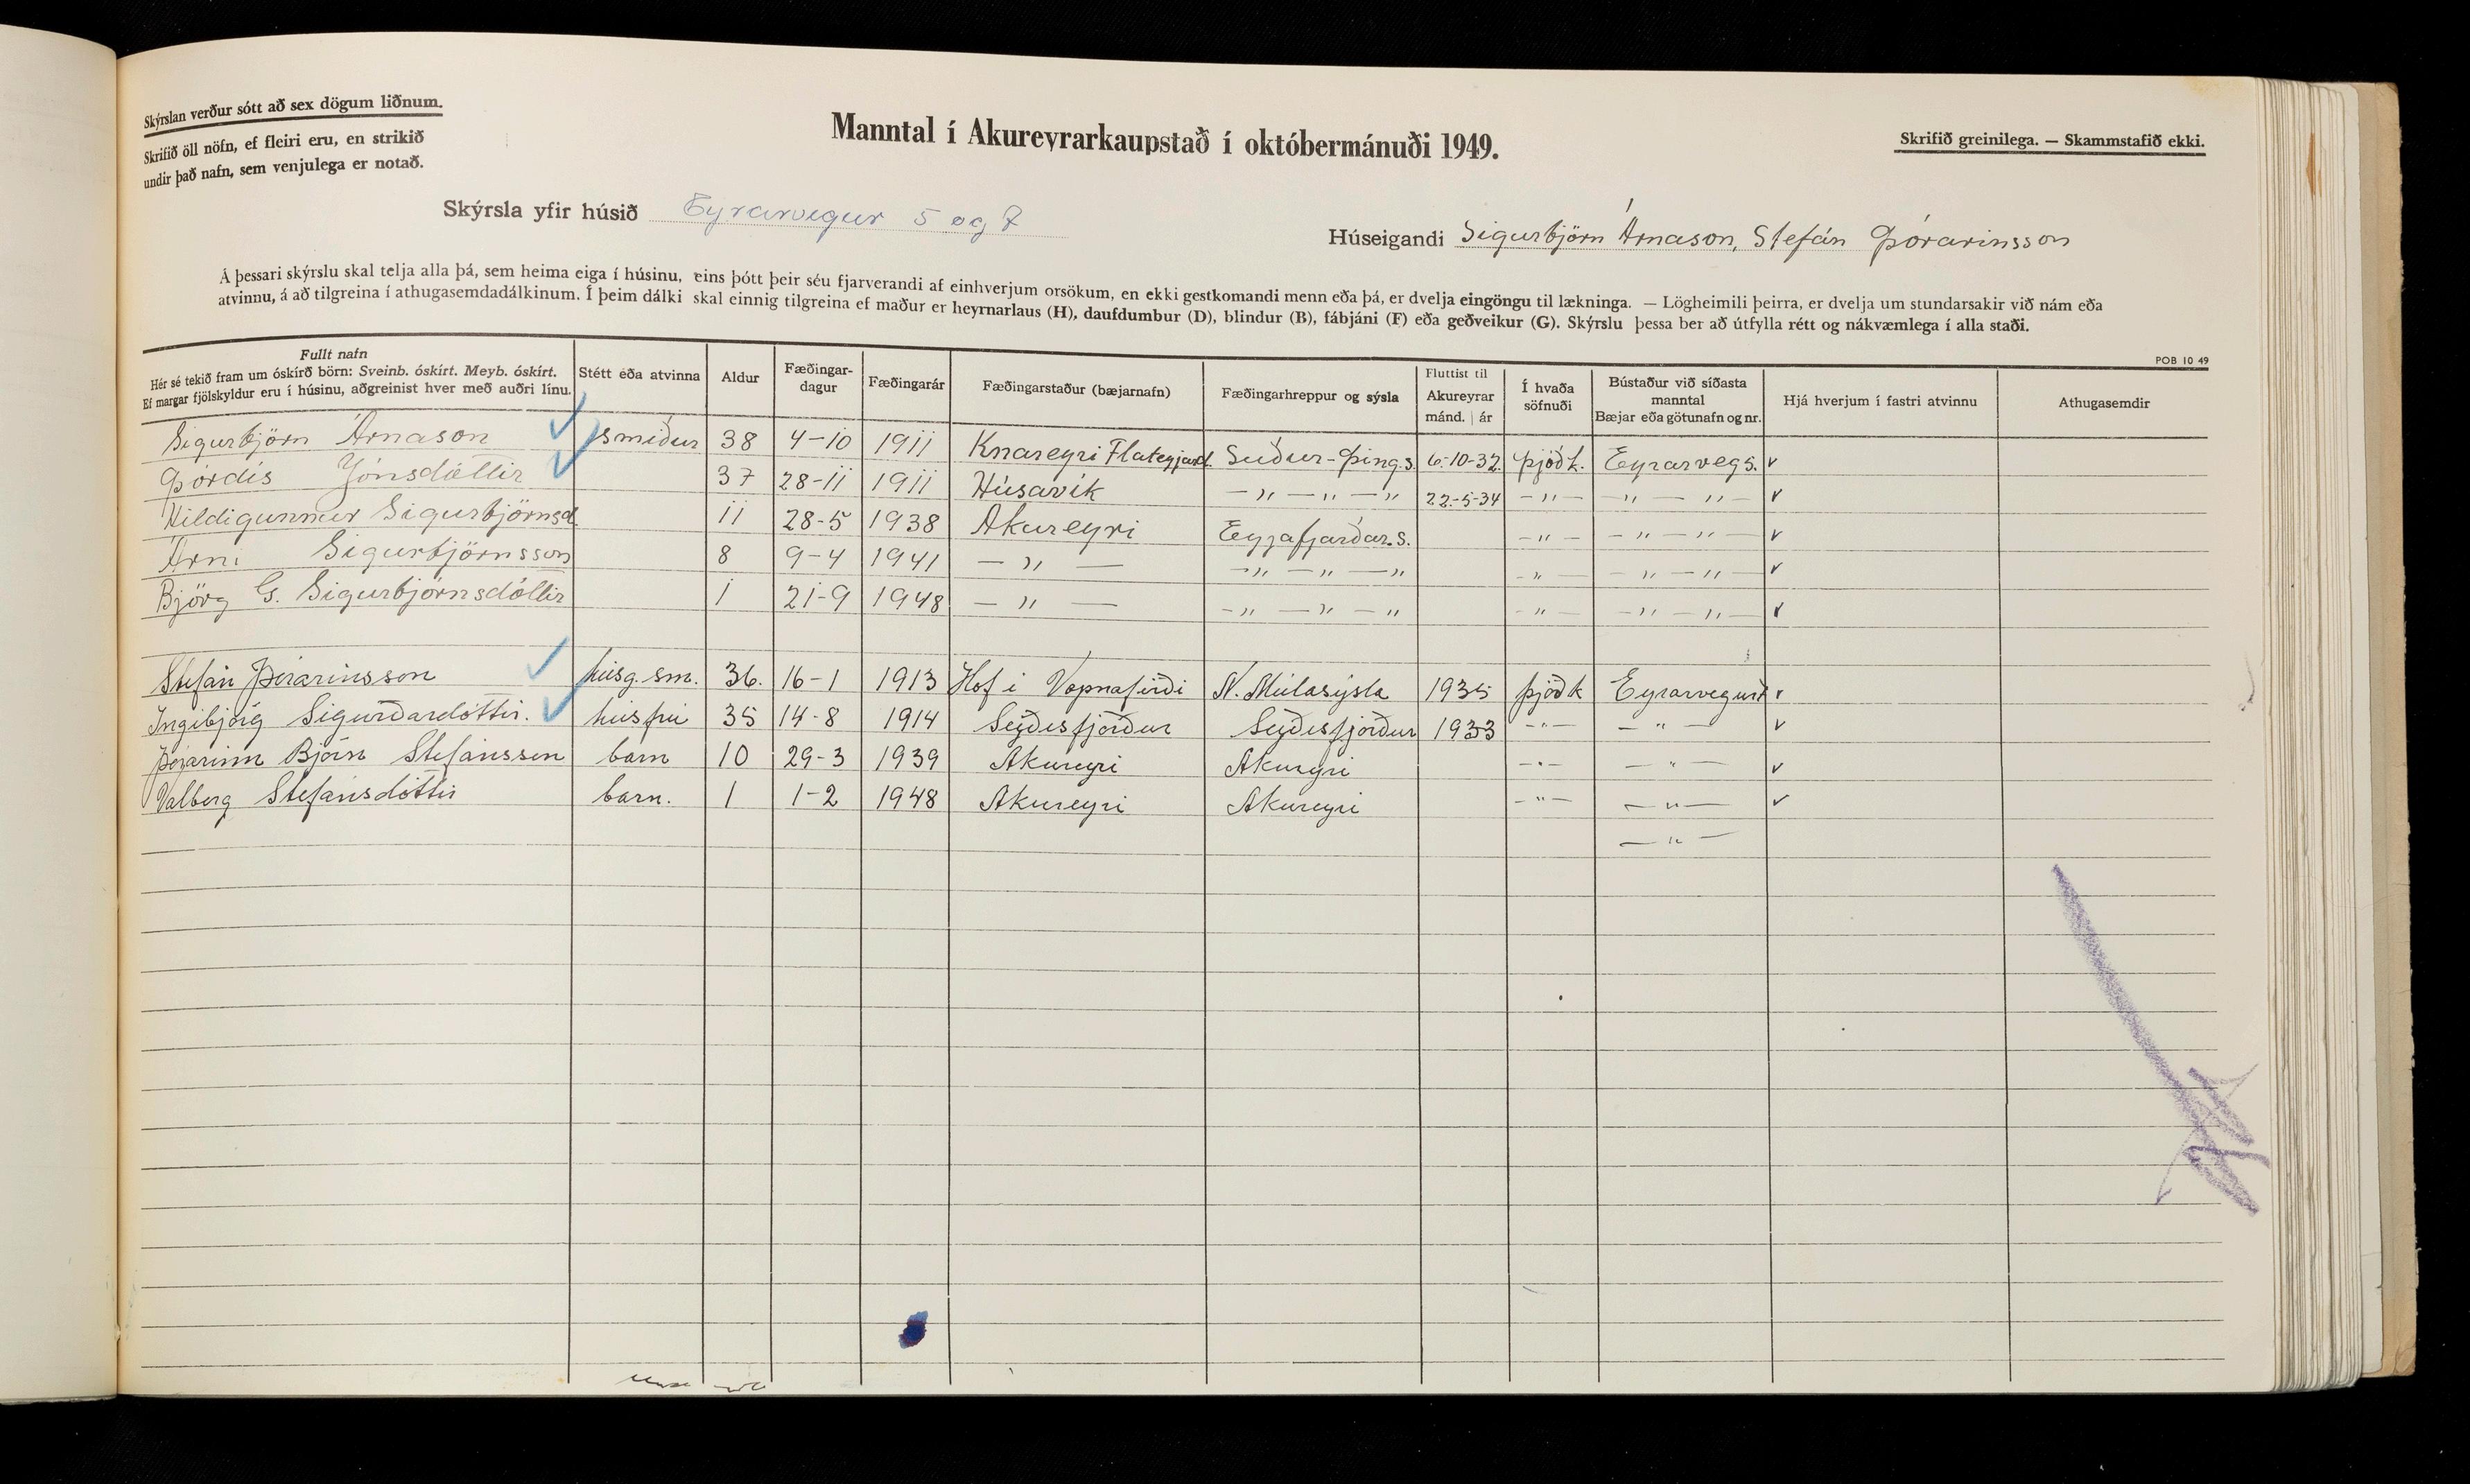 Skýrslan verður sótt að sex dögum liðnum.
Skrifið öll nöfn, ef fleiri eru, en strikið
undir það nafn, sem venjulega er notað.
Manntal í Akureyrarkaupstað í októbermánuði 1949.
Skrifið greinilega. — Skammstafið ekki.
Skýrsla yfir húsið Eyrarvegur 5 og 7
Húseigandi Sigurbjörn Árnason, Stefán Þórarinsson
Á þessari skýrslu skal telja alla þá, sem heima eiga í húsinu, eins þótt þeir séu fjarverandi af einhverjum orsökum, en ekki gestkomandi menn eða þá, er dvelja eingöngu til lækninga. — Lögheimili þeirra, er dvelja um stundarsakir við nám eða
atvinnu, á að tilgreina í athugasemdadálkinum. Í þeim dálki skal einnig tilgreina ef maður er heyrnarlaus (H), daufdumbur (D), blindur (B), fábjáni (F) eða geðveikur (G). Skýrslu þessa ber að útfylla rétt og nákvæmlega í alla staði.
POB 10 49
Fullt nafn
Hér sé tekið fram um óskírð börn: Sveinb. óskírt. Meyb. óskírt.
Ef margar fjölskyldur eru í húsinu, aðgreinist hver með auðri línu.
Stétt eða atvinna
Aldur
Fæðingar-
dagur
Fæðingarár
Fæðingarstaður (bæjarnafn)
Fæðingarhreppur og sýsla
Fluttist til
Akureyrar
mánd. | ár
Í hvaða
söfnuði
Bústaður við síðasta
manntal
Bæjar eða götunafn og nr.
Hjá hverjum í fastri atvinnu
Athugasemdir
Sigurbjörn Árnason smiður 38 4-10 1911 Knareyri Flateyjard. Suður-Þing.s. 6-10-32 Þjóðk. Eyrarveg 5.
Þórdís Jónsdóttir 37 28-11 1911 Húsavík — " — " — " 22-5-34 — " — — " — " —
Hildigunnur Sigurbjörnsd 11 28-5 1938 Akureyri Eyjafjarðar.s. — " — — " — " —
Árni Sigurbjörnsson 8 9-4 1941 — " — — " — " — " — " — — " — " —
Björg G. Sigurbjörnsdóttir 1 21-9 1948 — " — — " — " — " — " — — " — " —
Stefán Þórarinsson húsg.sm. 36. 16-1 1913 Hof í Vopnafirði N. Múlasýsla 1935 Þjóðk Eyrarvegur 7
Ingibjörg Sigurðardóttir. húsfrú 35 14-8 1914 Seyðisfjörður Seyðisfjörður 1933 — " — — " —
Þórarinn Björn Stefánsson barn 10 29-3 1939 Akureyri Akureyri — " — — " —
Valberg Stefánsdóttir barn. 1 1-2 1948 Akureyri Akureyri — " — — " —
— " —